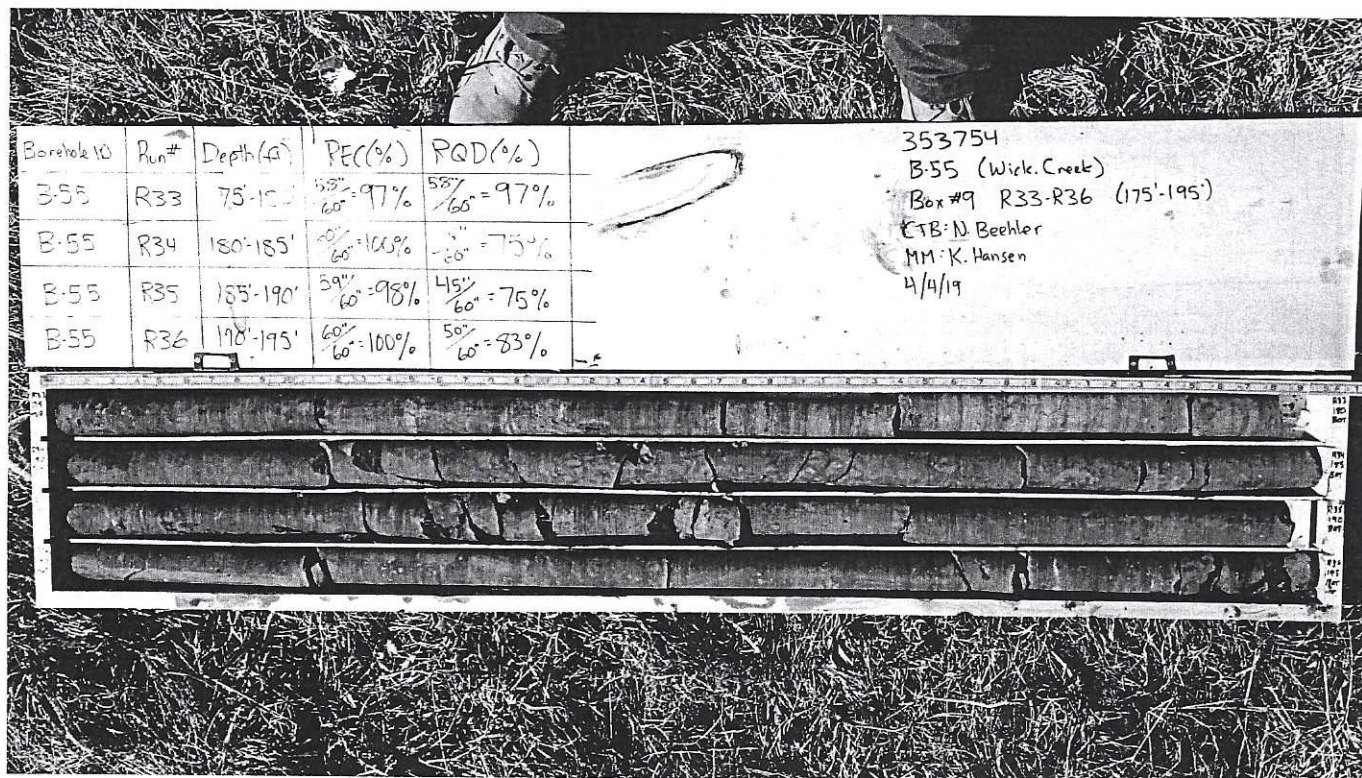 Borehole ID Run# Depth(ft) REC(%) RQD(%)
B-55 R33 75'- 58"/60"=97% 58"/60"=97%
B-55 R34 180'-185' 60"/60"=100% /60"=75%
B-55 R35 185'-190' 59"/60"=98% 45"/60"=75%
B-55 R36 190'-195' 60"/60"=100% 50"/60"=83%
353754
B-55 (Wick. Creek)
Box #9 R33-R36 (175'-195')
CTB: N. Beehler
MM: K. Hansen
4/4/19
R33
180
BOT
R34
185
BOT
R35
190
BOT
R36
195
BOT